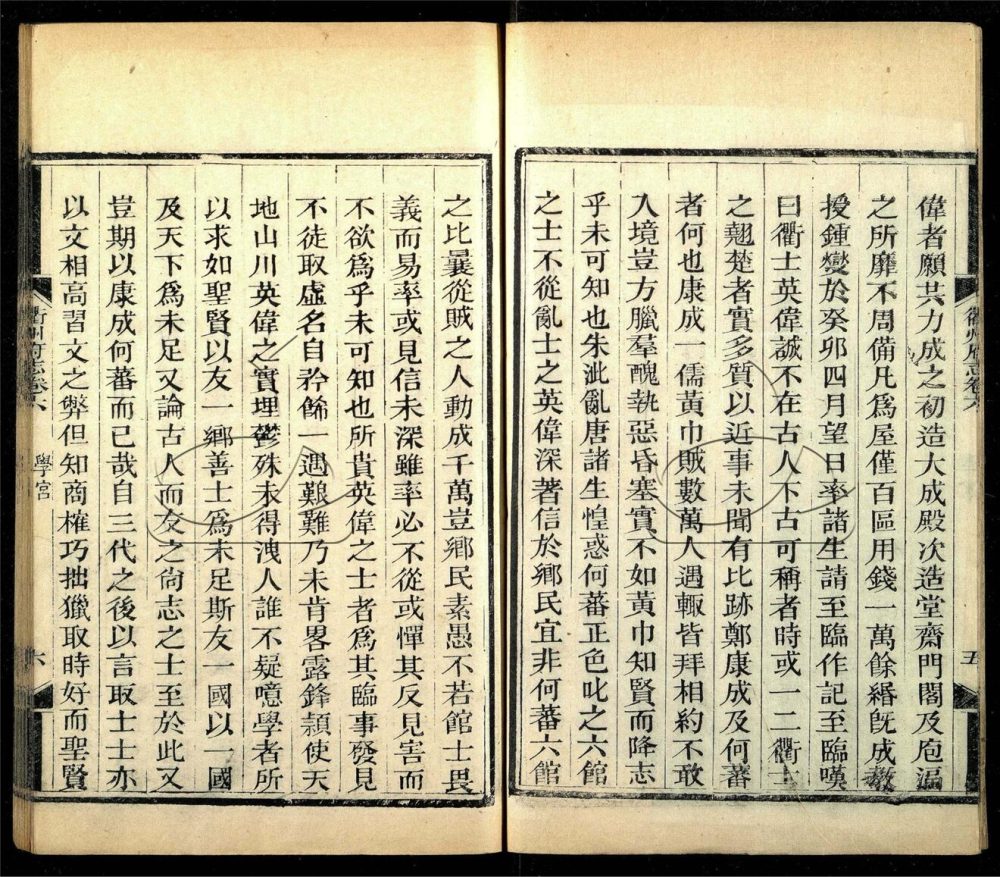 偉者願共力成之初造大成殿次造堂齋門閣及庖湢
之所靡不周備凡爲屋僅百區用錢一萬餘緡旣成敎
授鍾燮於癸卯四月望日率諸生請至臨作記至臨嘆
曰衢士英偉誠不在古人下古可稱者時或一二衢士
之翹楚者實多質以近事未聞有比跡鄭康成及何蕃
者何也康成一儒黃巾賊數萬人遇輙皆拜相約不敢
入境豈方臘羣醜執惡昏塞實不如黃巾知賢而降志
乎未可知也朱泚亂唐諸生惶惑何蕃正色叱之六館
之士不從亂士之英偉深著信於鄉民宜非何蕃六館
衢州府志卷六
五
之比曩從賊之人動成千萬豈鄉民素愚不若館士畏
義而易率或見信未深雖率必不從或憚其反見害而
不欲爲乎未可知也所貴英偉之士者爲其臨事發見
不徒取虛名自矜餙一遇艱難乃未肯畧露鋒頴使天
地山川英偉之實埋鬱殊未得洩人誰不疑噫學者所
以求如聖賢以友一鄉善士爲未足斯友一國以一國
及天下爲未足又論古人而友之尙志之士至於此又
豈期以康成何蕃而已哉自三代之後以言取士士亦
以文相高習文之弊但知商榷巧拙獵取時好而聖賢
衢州府志卷六
學宮
六